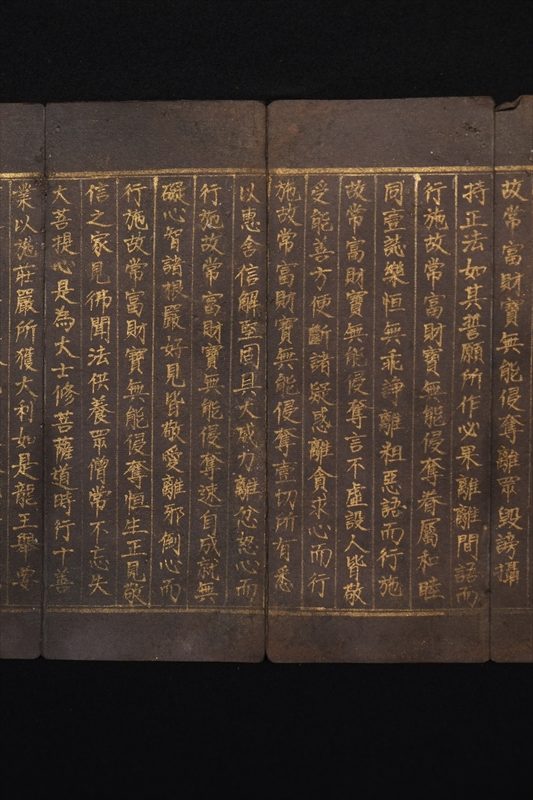 故常富財寶無能侵奪離眾毀謗攝
持正法如其誓願所作必果離離間語而
行施故常富財寶無能侵奪眷屬和睦
同壹誌樂恒無乖諍離粗惡語而行施
故常富財寶無能侵奪言不虛設人皆敬
受能善方便斷諸疑惑離貪求心而行
施故常富財寶無能侵奪壹切所有悉
以惠舍信解堅固具大威力離忿怒心而
行施故常富財寶無能侵奪速自成就無
礙心智諸根嚴好見皆敬愛離邪倒心而
行施故常富財寶無能侵奪恒生正見敬
信之家見佛聞法供養眾僧常不忘失
大菩提心是為大士修菩薩道時行十善
業以施莊嚴所獲大利如是龍王舉要